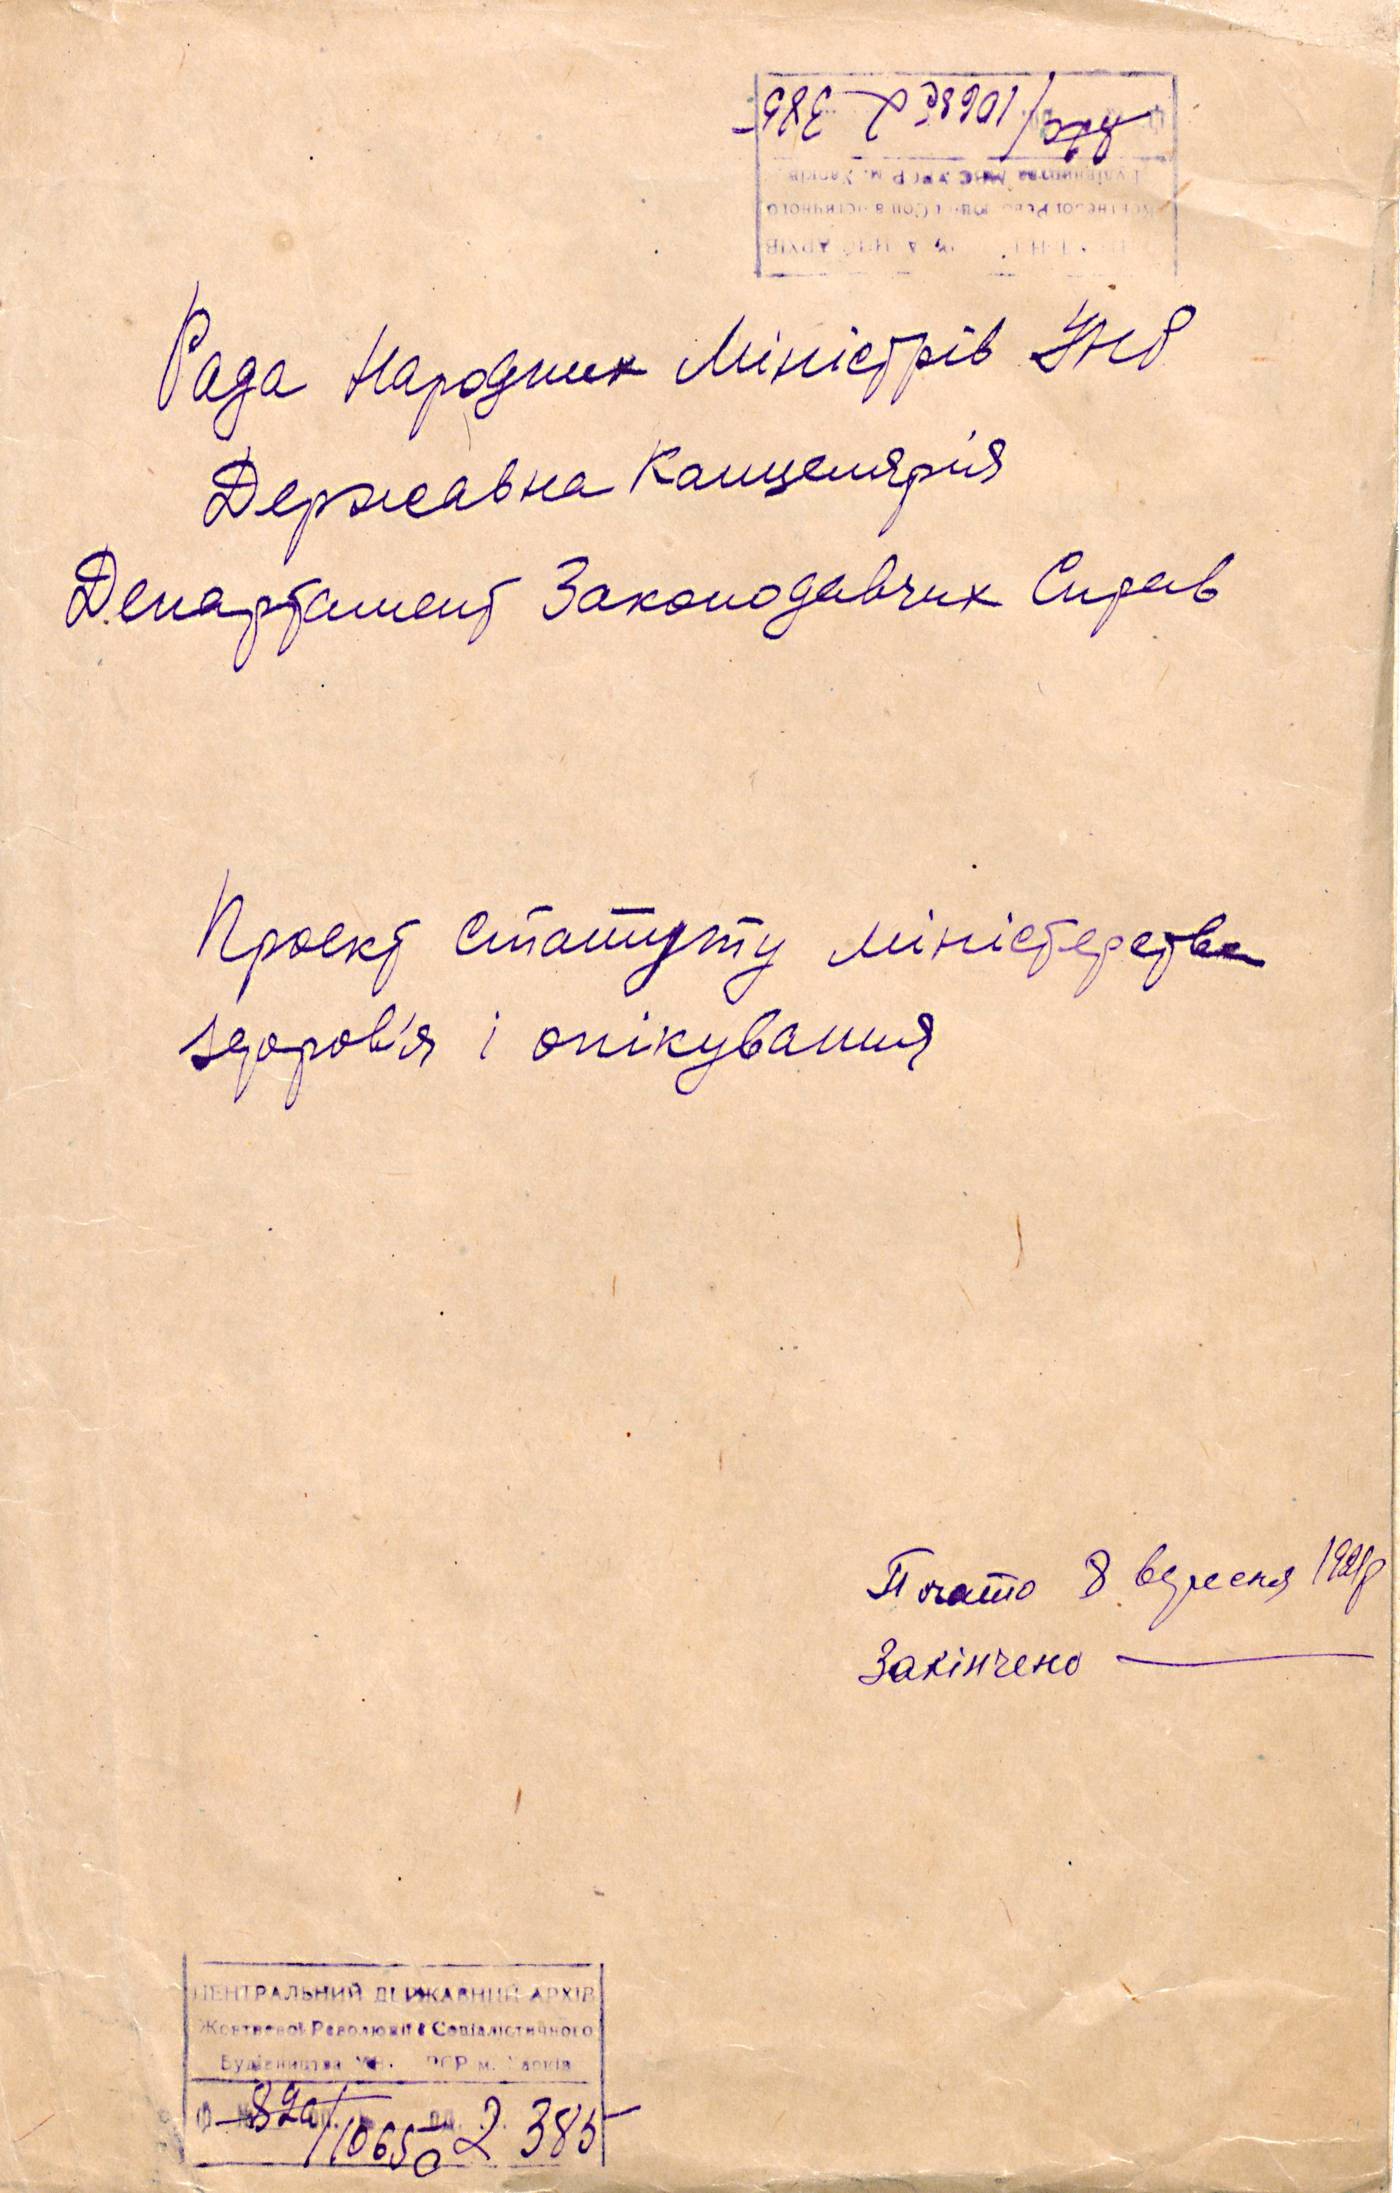 Рада Народних Міністрів УНР
Державна Канцелярія
Департамент Законодавчих Справ
Проект статуту міністерства
здоров'я і опікування
Почато 8 вересня 1921р
Закінчено —
ЦЕНТРАЛЬНИЙ ДЕРЖАВНИЙ АРХІВ
Жовтневої Революції і Соціалістичного
Будівництва УРСР м. Харків
2 385